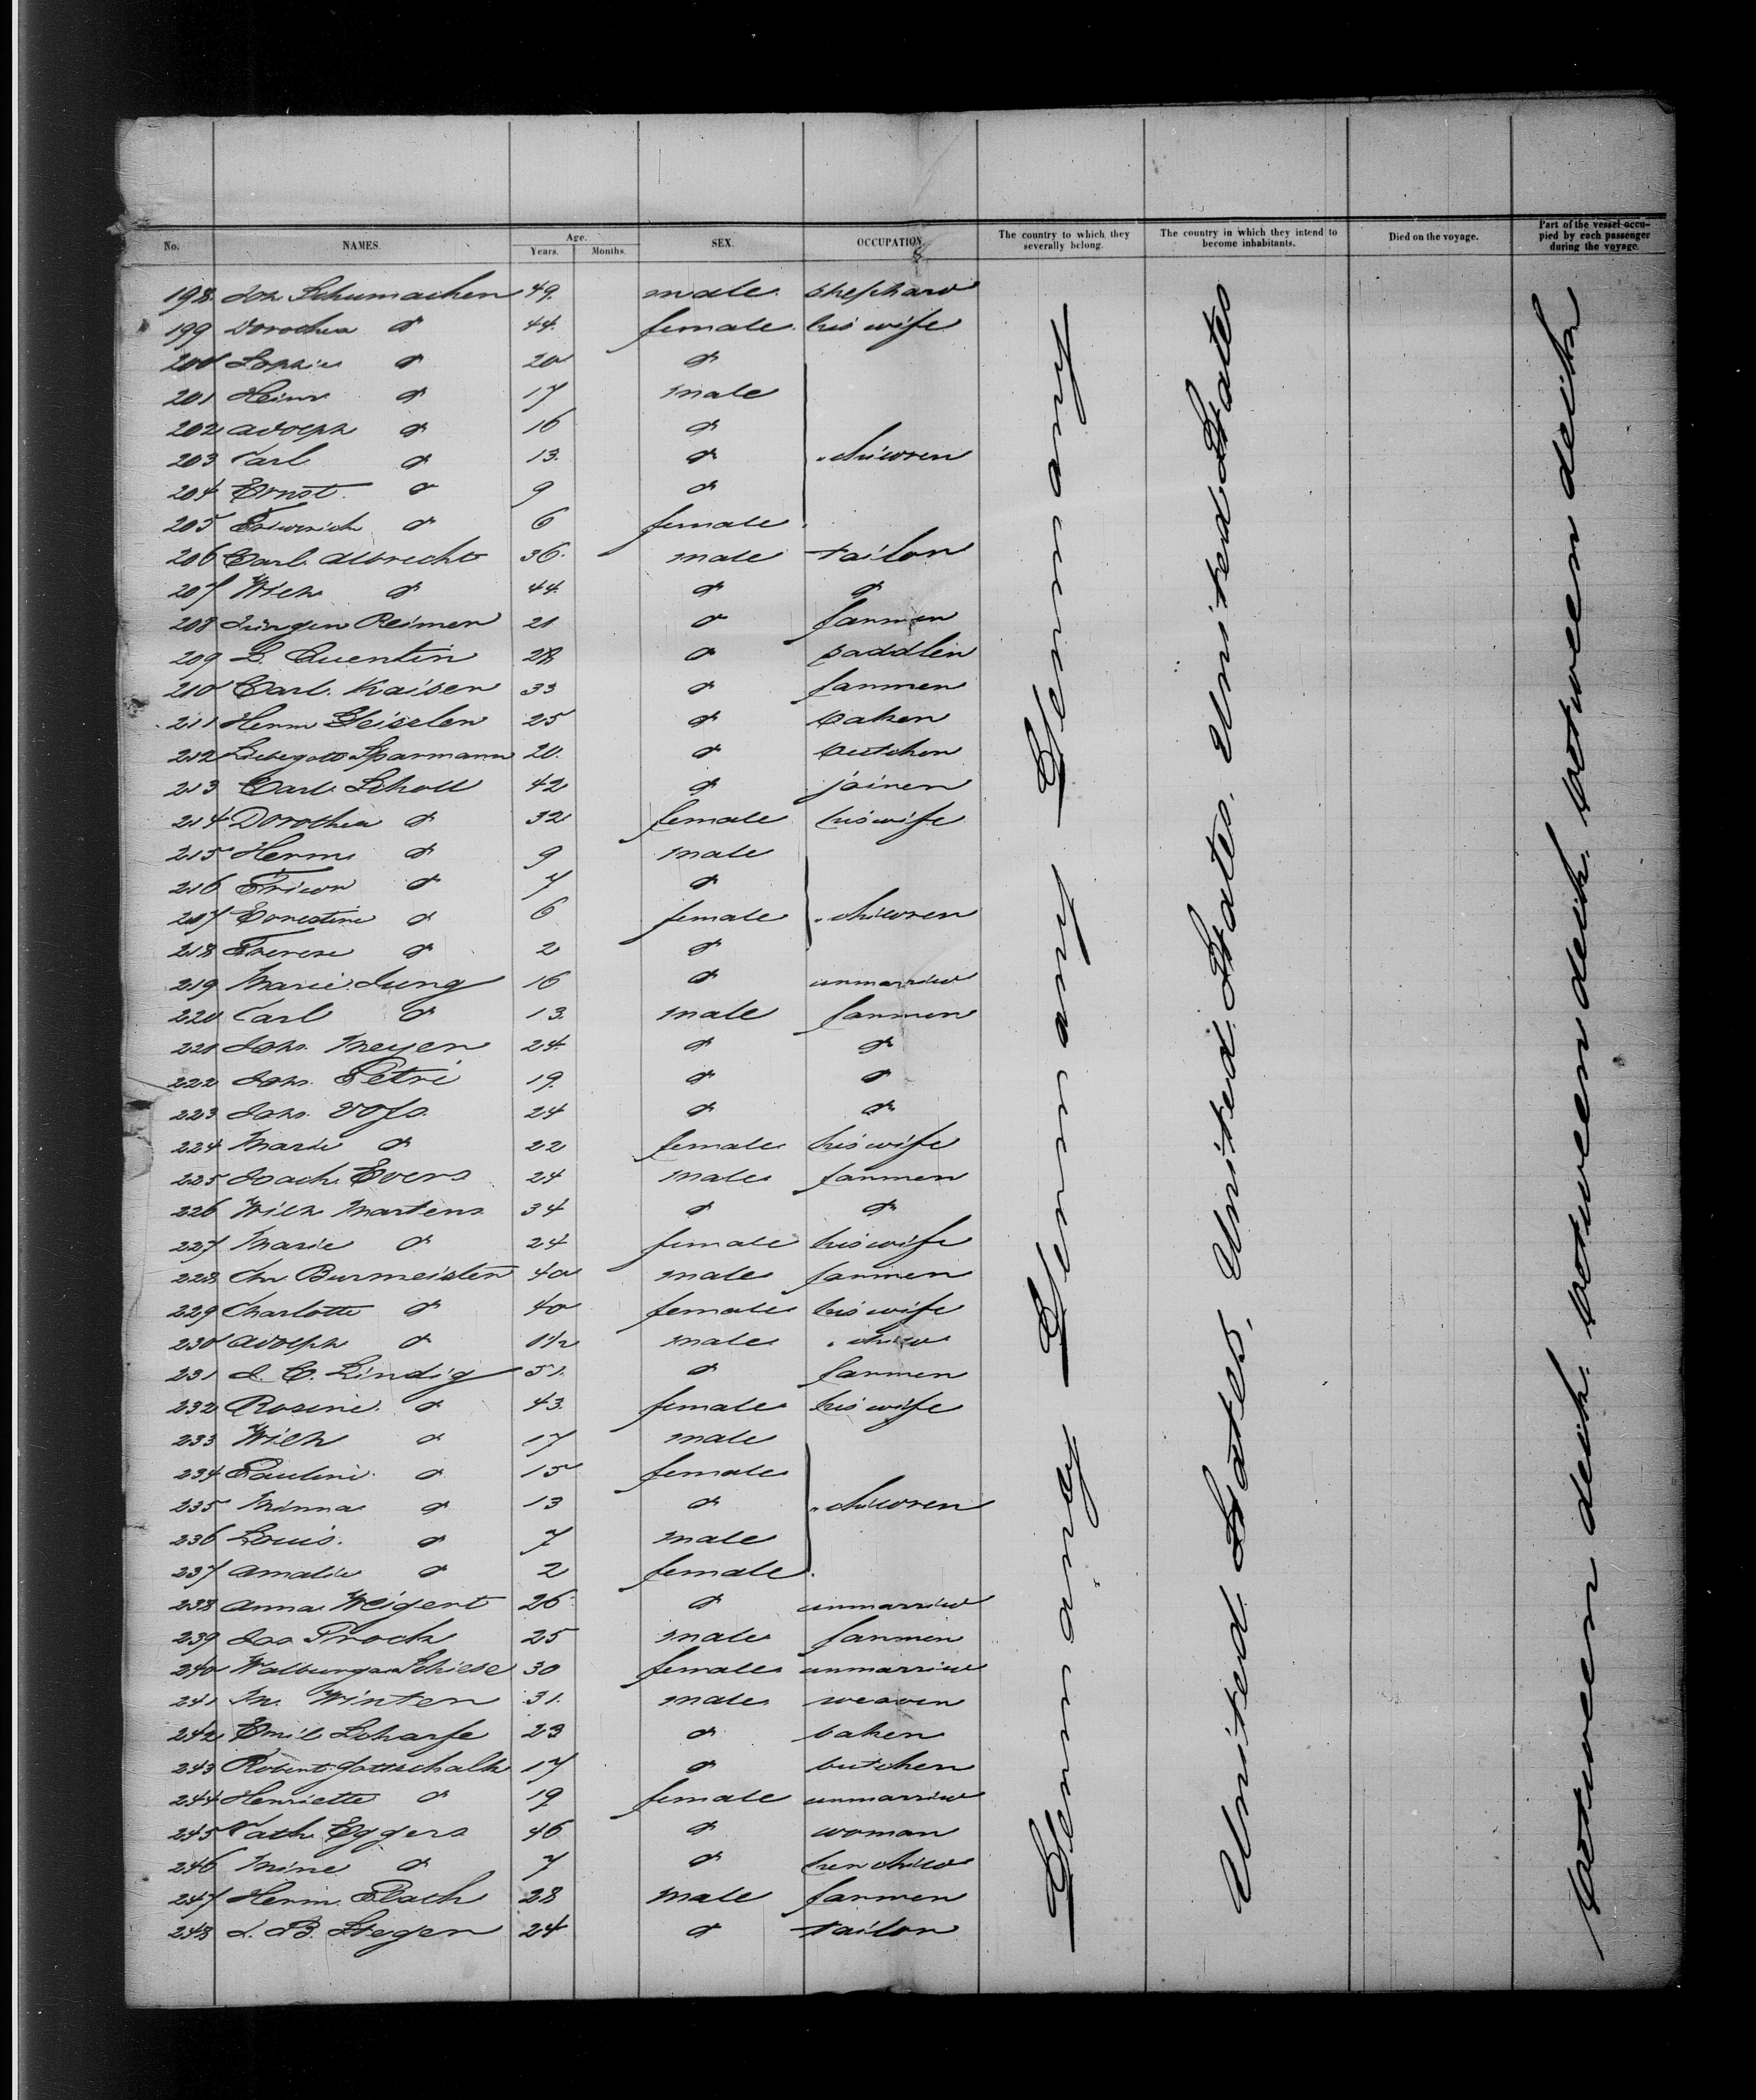 No. NAMES. Age. Years. Months. SEX. OCCUPATION. The country to which they severally belong. The country in which they intend to become inhabitants. Died on the voyage. Part of the vessel occupied by each passenger during the voyage.
198 Joh Schumacher 49. male shephard
199 Dorothea do 44. female his wife
200 Sophie do 20 do
201 Heinr do 17 male
202 Adolph do 16 do
203 Carl do 13. do children
204 Ernst do 9 do
205 Friedrich do 6 female
206 Carl Albrecht 36. male tailor
207 Wilh do 44. do do
208 Jürgen Reimer 21 do farmer
209 L. Quentin 28 do saddler
210 Carl Kaiser 33 do farmer
211 Herm Geisler 25 do baker
212 Liebegott Sparmann 20. do butcher
213 Carl Scholl 42 do joiner
214 Dorothea do 32 female his wife
215 Herm do 9 male
216 Friedr do 7 do
217 Ernestine do 6 female children
218 Therese do 2 do
219 Marie Jung 16 do unmarried
220 Carl do 13. male farmer
221 Joh. Meyer 24 do do
222 Joh. Petri 19. do do
223 Joh. Vofs. 24 do do
224 Marie do 22 female his wife
225 Joach Evers 24 male farmer
226 Wilh Martens 34 do do
227 Marie do 24 female his wife
228 Chr Burmeister 40 male farmer
229 Charlotte do 40 female his wife
230 Adolph do 1½ male child
231 J. C. Lindig 51. do farmer
232 Rosine do 43. female his wife
233 Wilh do 17 male
234 Pauline do 15 female
235 Minna do 13 do children
236 Louis. do 7 male
237 Amalie do 2 female
238 Anna Weigert 26 do unmarried
239 Jos Prock 25 male farmer
240 Walburga Schiese 30 female unmarried
241 M. Winter 31. male weaver
242 Emil Scharfe 23 do baker
243 Robert Gottschalk 17 do butcher
244 Henriette do 19 female unmarried
245 Cath Eggers 46 do woman
246 Mine do 7 do her child
247 Herm Plath 28 male farmer
248 J. B. Steger 24 do tailor
Germany Germany Germany
United States, United States, United States
between deck. between deck. between deck